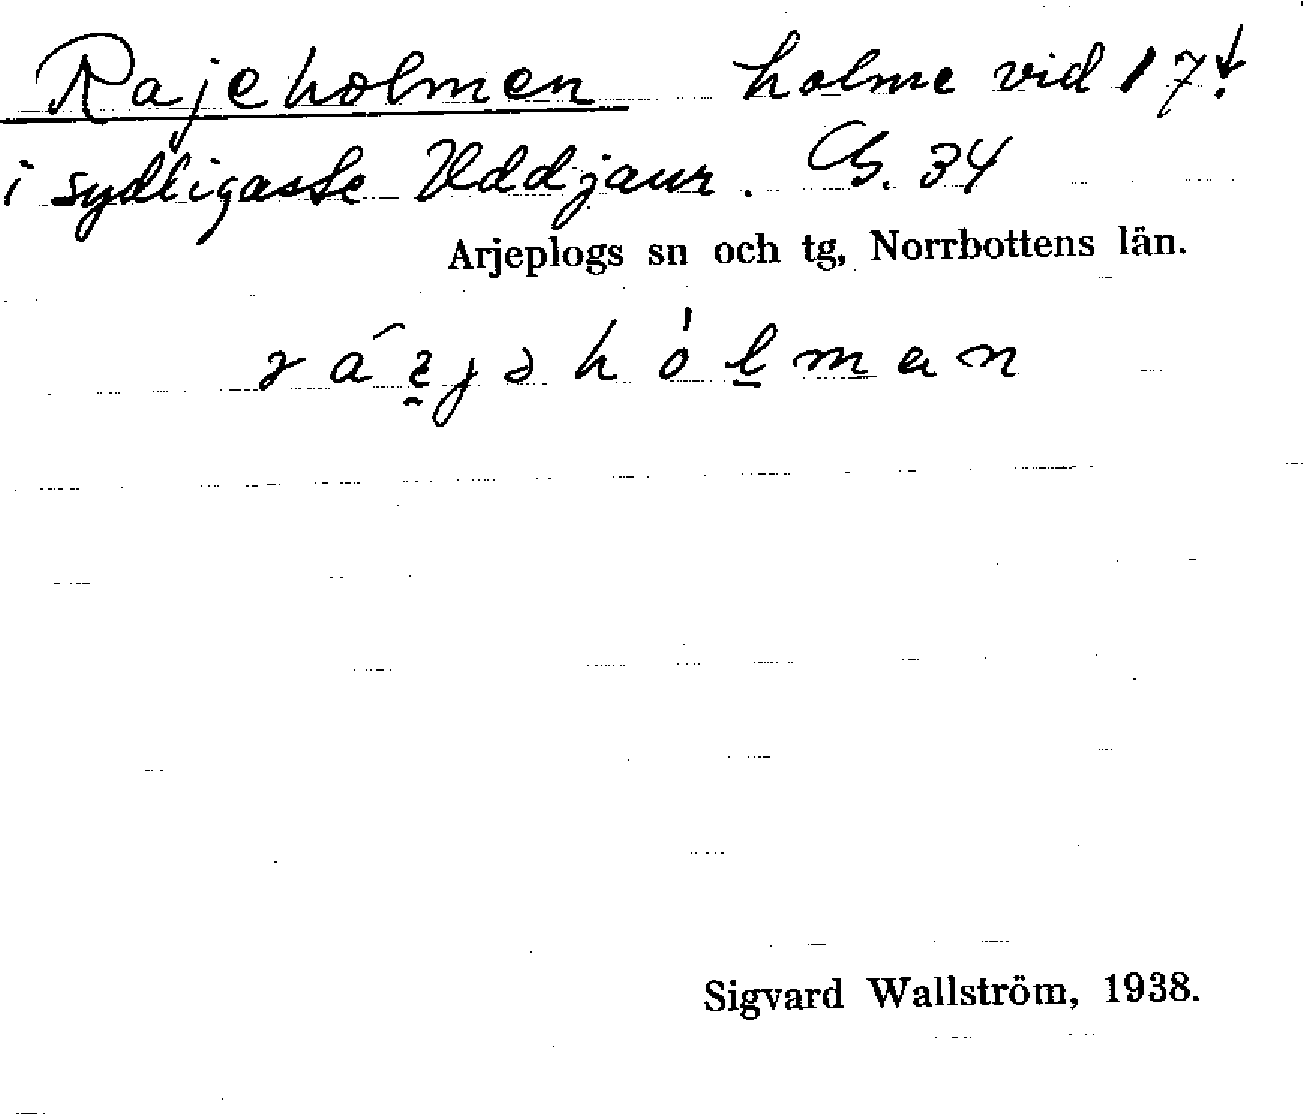 Rajeholmen holme vid 17↓
i sydligaste Uddjaur. Gs. 34
Arjeplogs sn och tg, Norrbottens län.
Sigvard Wallström, 1938.